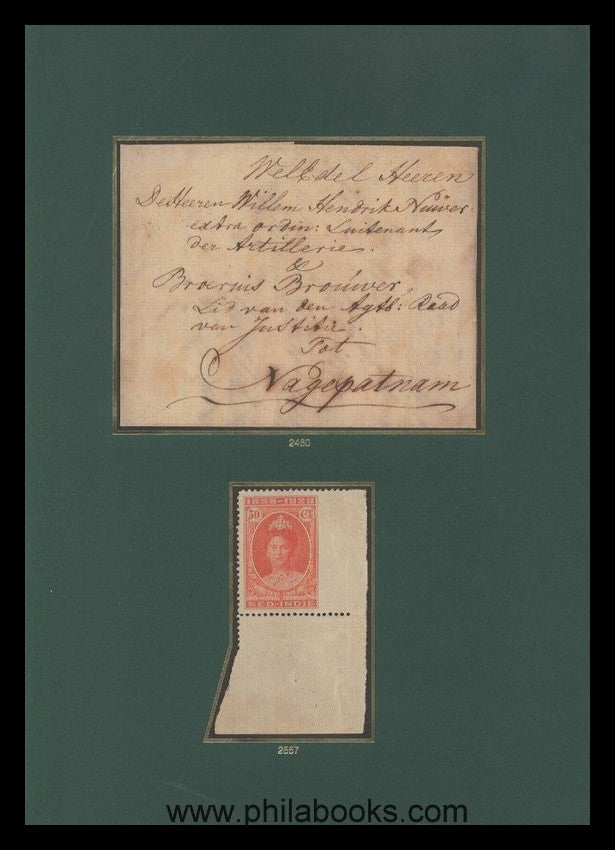 WelEdel Heeren
De Heeren Willem Hendrik Nüver
extra ordin: Luitenant
der Artillerie
&
Broerius Broúwer,
Lid van den Agtb: Raad
van Justitie.
Tot
Nagapatnam
2480
1898-1923
50 Ct
NED-INDIE
2557
www.philabooks.com